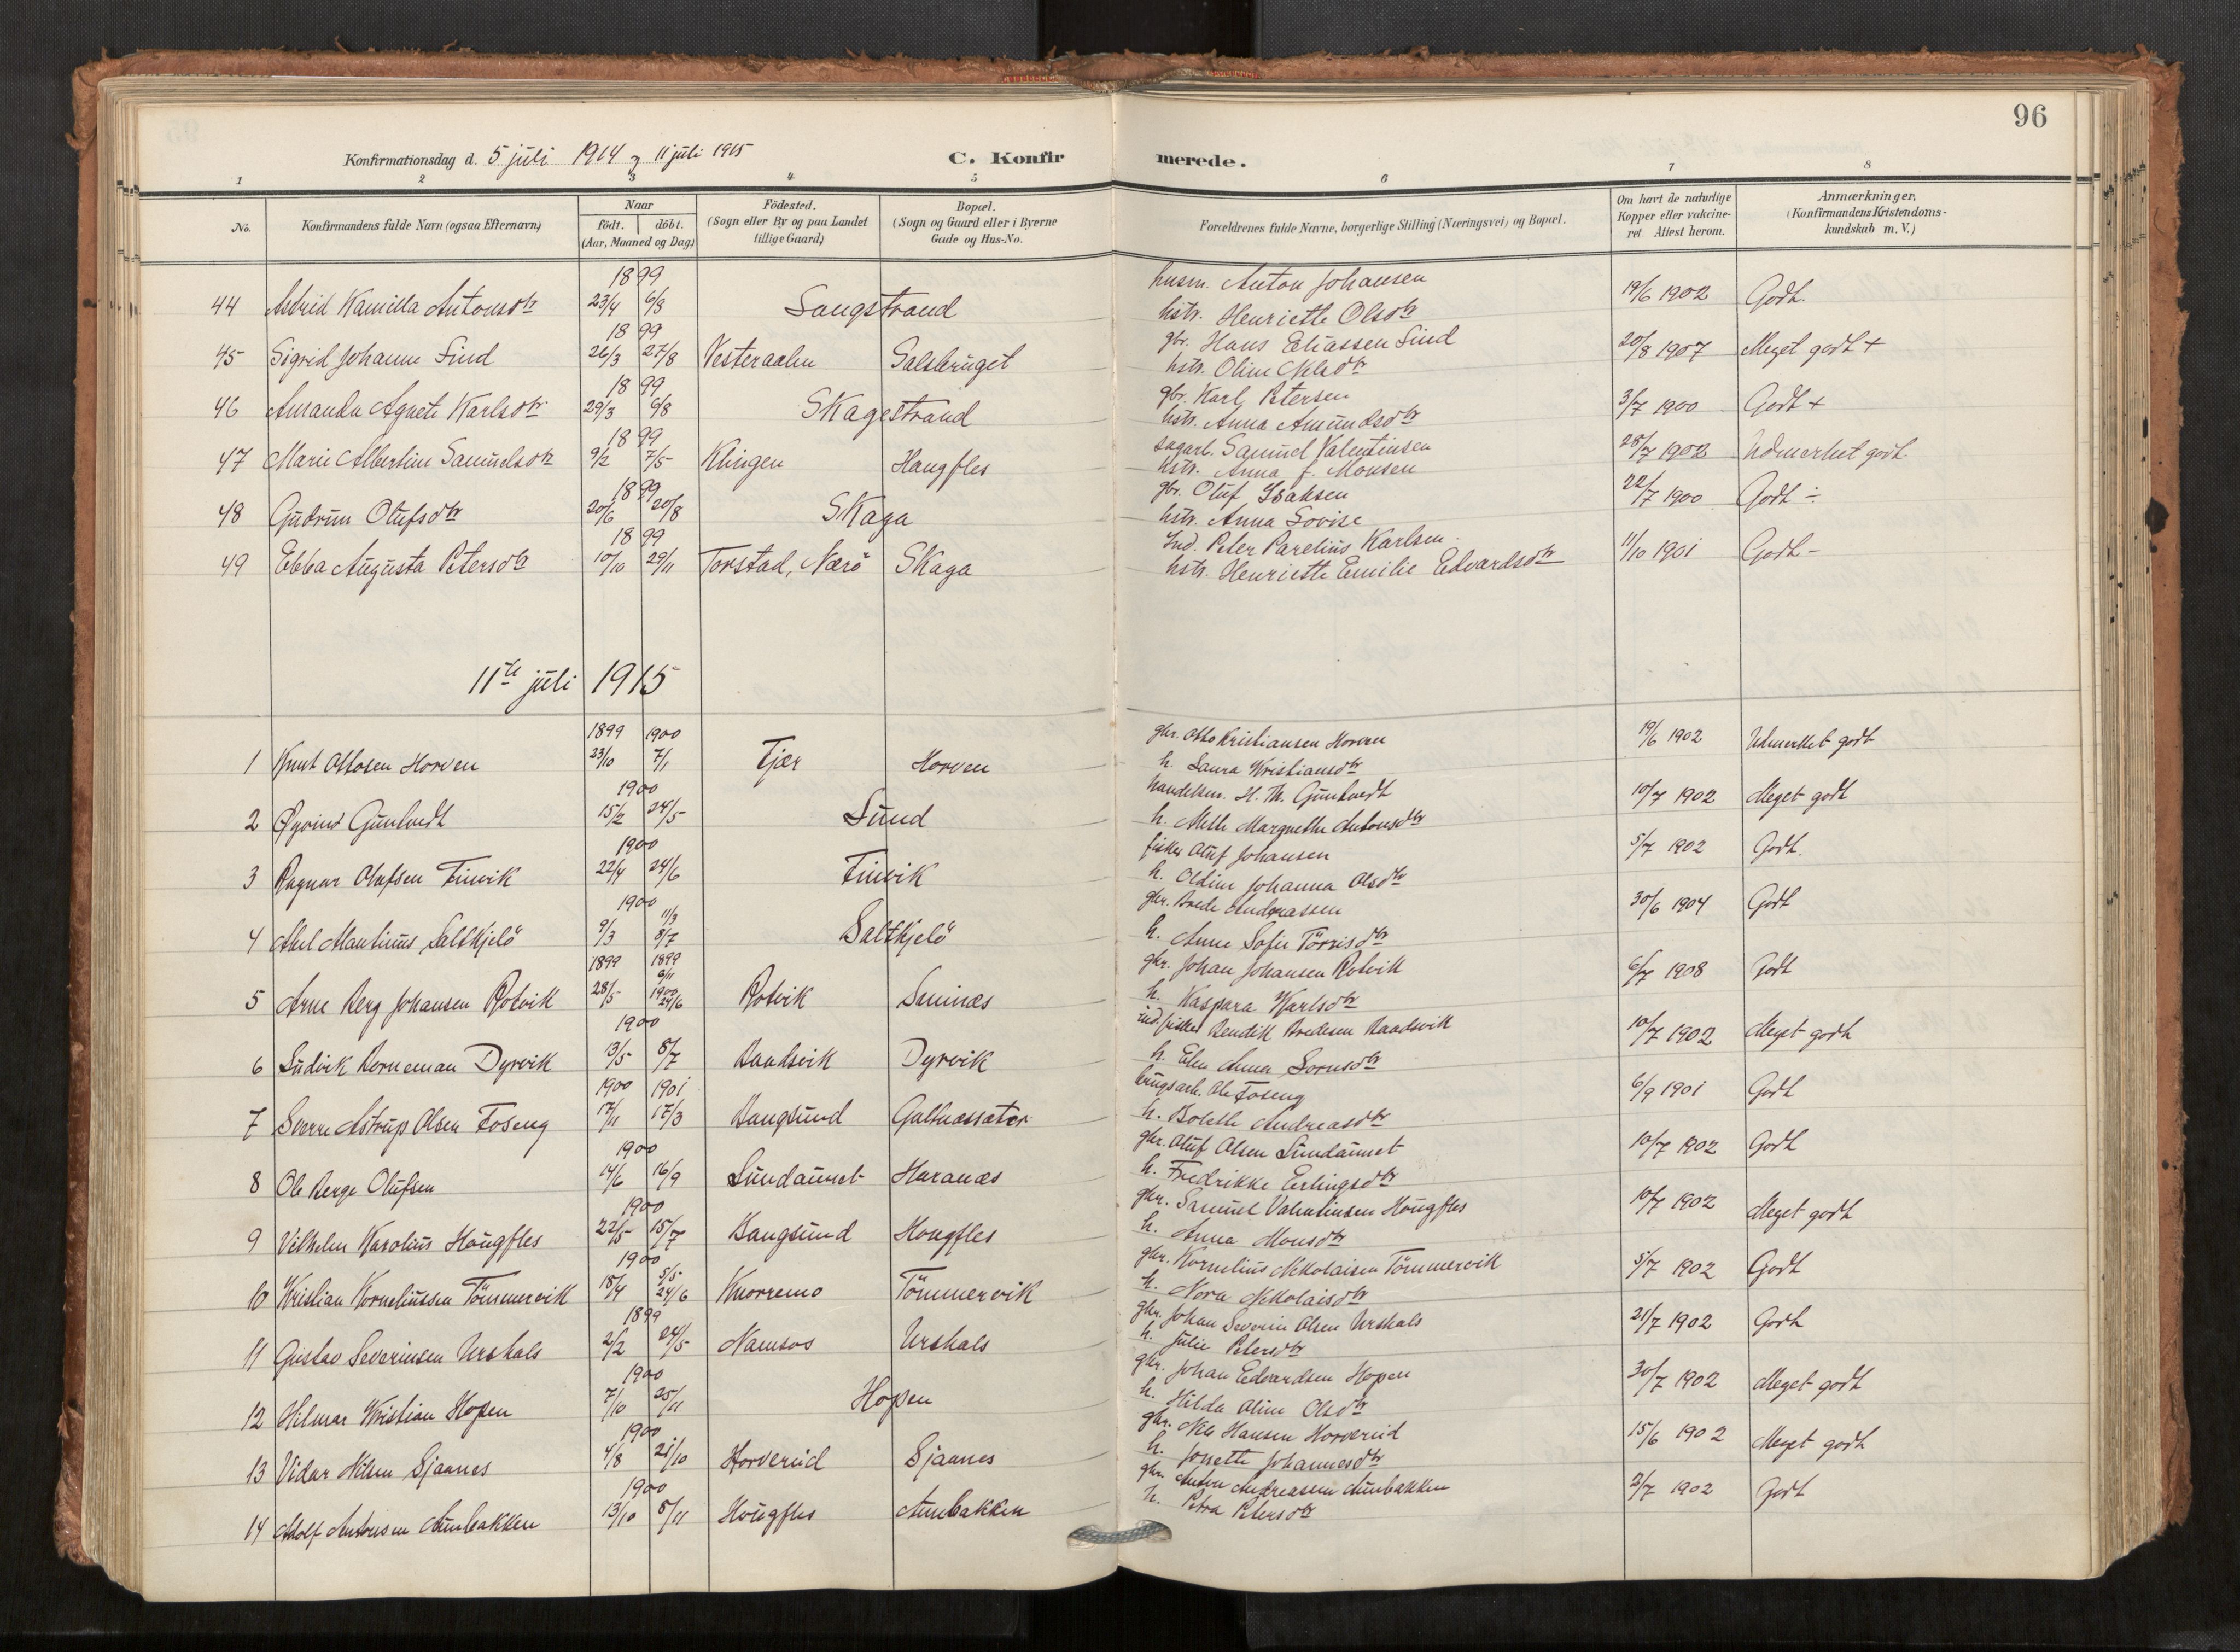 96
Konfirmationsdag d. 5 juli 1914 og 11 juli 1915
C. Konfirmerede.
1 2 3 4 5 6 7 8
No.
Konfirmandens fulde Navn (ogsaa Efternavn)
Naar
födt. döbt.
(Aar, Maaned og Dag)
Födested.
(Sogn eller By og paa Landet
tillige Gaard)
Bopæl.
(Sogn og Gaard eller i Byerne
Gade og Hus-No.
Forældrenes fulde Navne, borgerlige Stilling (Næringsvei) og Bopæl.
Om havt de naturlige
Kopper eller vakcine-
ret Attest herom.
Anmærkninger.
(Konfirmandens Kristendoms-
kundskab m. V.)
1899
husm. Anton Johansen
44 Astrid Kamilla Antonsdtr 23/4 6/8 Saugstrand hstr. Henriette Olsdtr 19/6 1902 Godt.
1899
gbr. Hans Eliassen Lind
45 Sigrid Johanne Lind 26/3 27/8 Vesteraalen Salsbruget hstr. Oline Nilsdtr 20/8 1907 Meget godt +
1899
gbr. Karl Petersen
46 Amanda Agnete Karlsdtr 29/3 6/8 Skagestrand hstr. Anna Amundsdtr 3/7 1900 Godt +
1899
sagarb. Samuel Valentinsen
47 Marie Albertine Samuelsdtr 9/2 7/5 Klingen Haugfles hstr. Anna J. Monsen 28/7 1902 Udmerket godt
1899
gbr. Oluf Isaksen
48 Gudrun Olufsdtr 20/6 20/8 Skaga hstr. Anna Lovise 22/7 1900 Godt ÷
1899
Ind. Peter Parelius Karlsen
49 Ebba Augusta Petersdtr 10/10 29/11 Torstad, Nærö Skaga hstr. Henriette Emilie Edvardsdtr 11/10 1901 Godt -
11te juli 1915
1899 1900
gbr. Otto Kristiansen Horven
1 Knut Ottosen Horven 23/10 7/1 Fjær Horven h. Laura Kristiansdtr 19/6 1902 Udmerket godt
1900
handelsm. H. Th. Gunhvedt
2 Øyvind Gunhvedt 15/2 24/5 Lund h. Mette Margrethe Antonsdtr 10/7 1902 Meget godt
1900
fisker Oluf Johansen
3 Ragnar Olufsen Finvik 22/4 24/6 Finvik h. Oldine Johanna Olsdtr 5/7 1902 Godt.
1900
gbr. Brede Andreassen
11/3
4 Axel Martinus Saltkjelö 9/3 8/7 Saltkjelö h. Anne Sofie Törrisdtr 30/6 1904 Godt
1899 1899
6/11
gbr. Johan Johansen Rotvik
5 Arne Berg Johansen Rotvik 28/5 1900 24/6 Rotvik Seminæs h. Kaspara Karlsdtr 6/7 1908 Godt
1900
ind. fisker Bendik Bredesen Baadsvik
6 Ludvik Borneman Dyrvik 13/5 8/7 Baadsvik Dyrvik h. Elen Anna Lornsdtr 10/7 1902 Meget godt
1900 1901
brugsarb. Ole Foseng
7 Sverre Astrup Olsen Foseng 17/11 17/3 Bangsund Galtnessæter h. Bolette Andreasdtr 6/9 1901 Godt
1900
gbr. Oluf Olsen Sundaunet
8 Ole Berge Olufsen 14/6 16/9 Sundaunet Haranæs h. Fredrikke Erlingsdtr 10/7 1902 Godt
1900
gbr. Samuel Valentinsen Hougfles
9 Vilhelm Karolius Hougfles 22/5 15/7 Bangsund Hougfles h. Anna Monsdtr 10/7 1902 Meget godt
1900
gbr. Kornelius Nikolaisen Tömmervik
5/5
10 Kristian Korneliussen Tömmervik 18/4 24/6 Knorremo Tömmervik h. Nora Nikolaisdtr 5/7 1902 Godt
1899
gbr. Johan Severin Olsen Urskals
11 Gustav Severinsen Urskals 2/2 24/5 Namsos Urskals h. Julie Petersdtr 21/7 1902 Godt
1900
gbr. Johan Edvardsen Hopen
12 Hilmar Kristian Hopen 7/10 25/11 Hopen h. Hilda Oline Olsdtr 30/7 1902 Meget godt
1900
gbr. Nils Hansen Horvereid
13 Vidar Nilsen Sjaanes 4/8 28/10 Horvereid Sjaanes h. Jonette Johannesdtr 15/6 1902 Meget godt
1900
gbr. Anton Andreassen Aunbakken
14 Adolf Antonsen Aunbakken 13/10 8/11 Hougfles Aunbakken h. Petra Petersdtr 2/7 1902 Godt